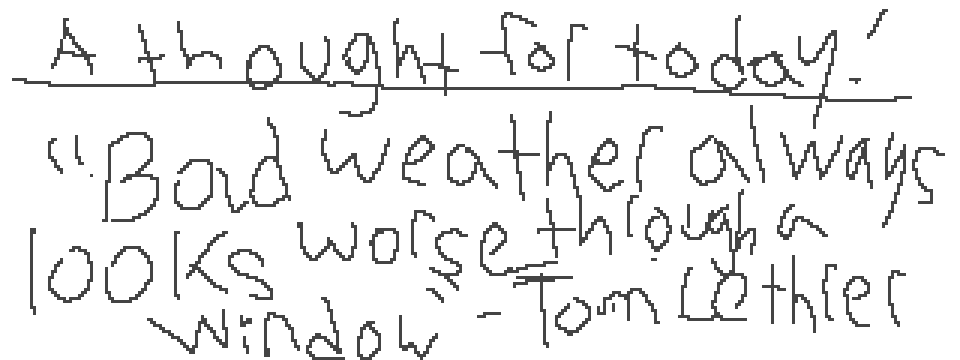 A thought for today!
"Bad weather always
looks worse through a
window" - Tom Lethrer